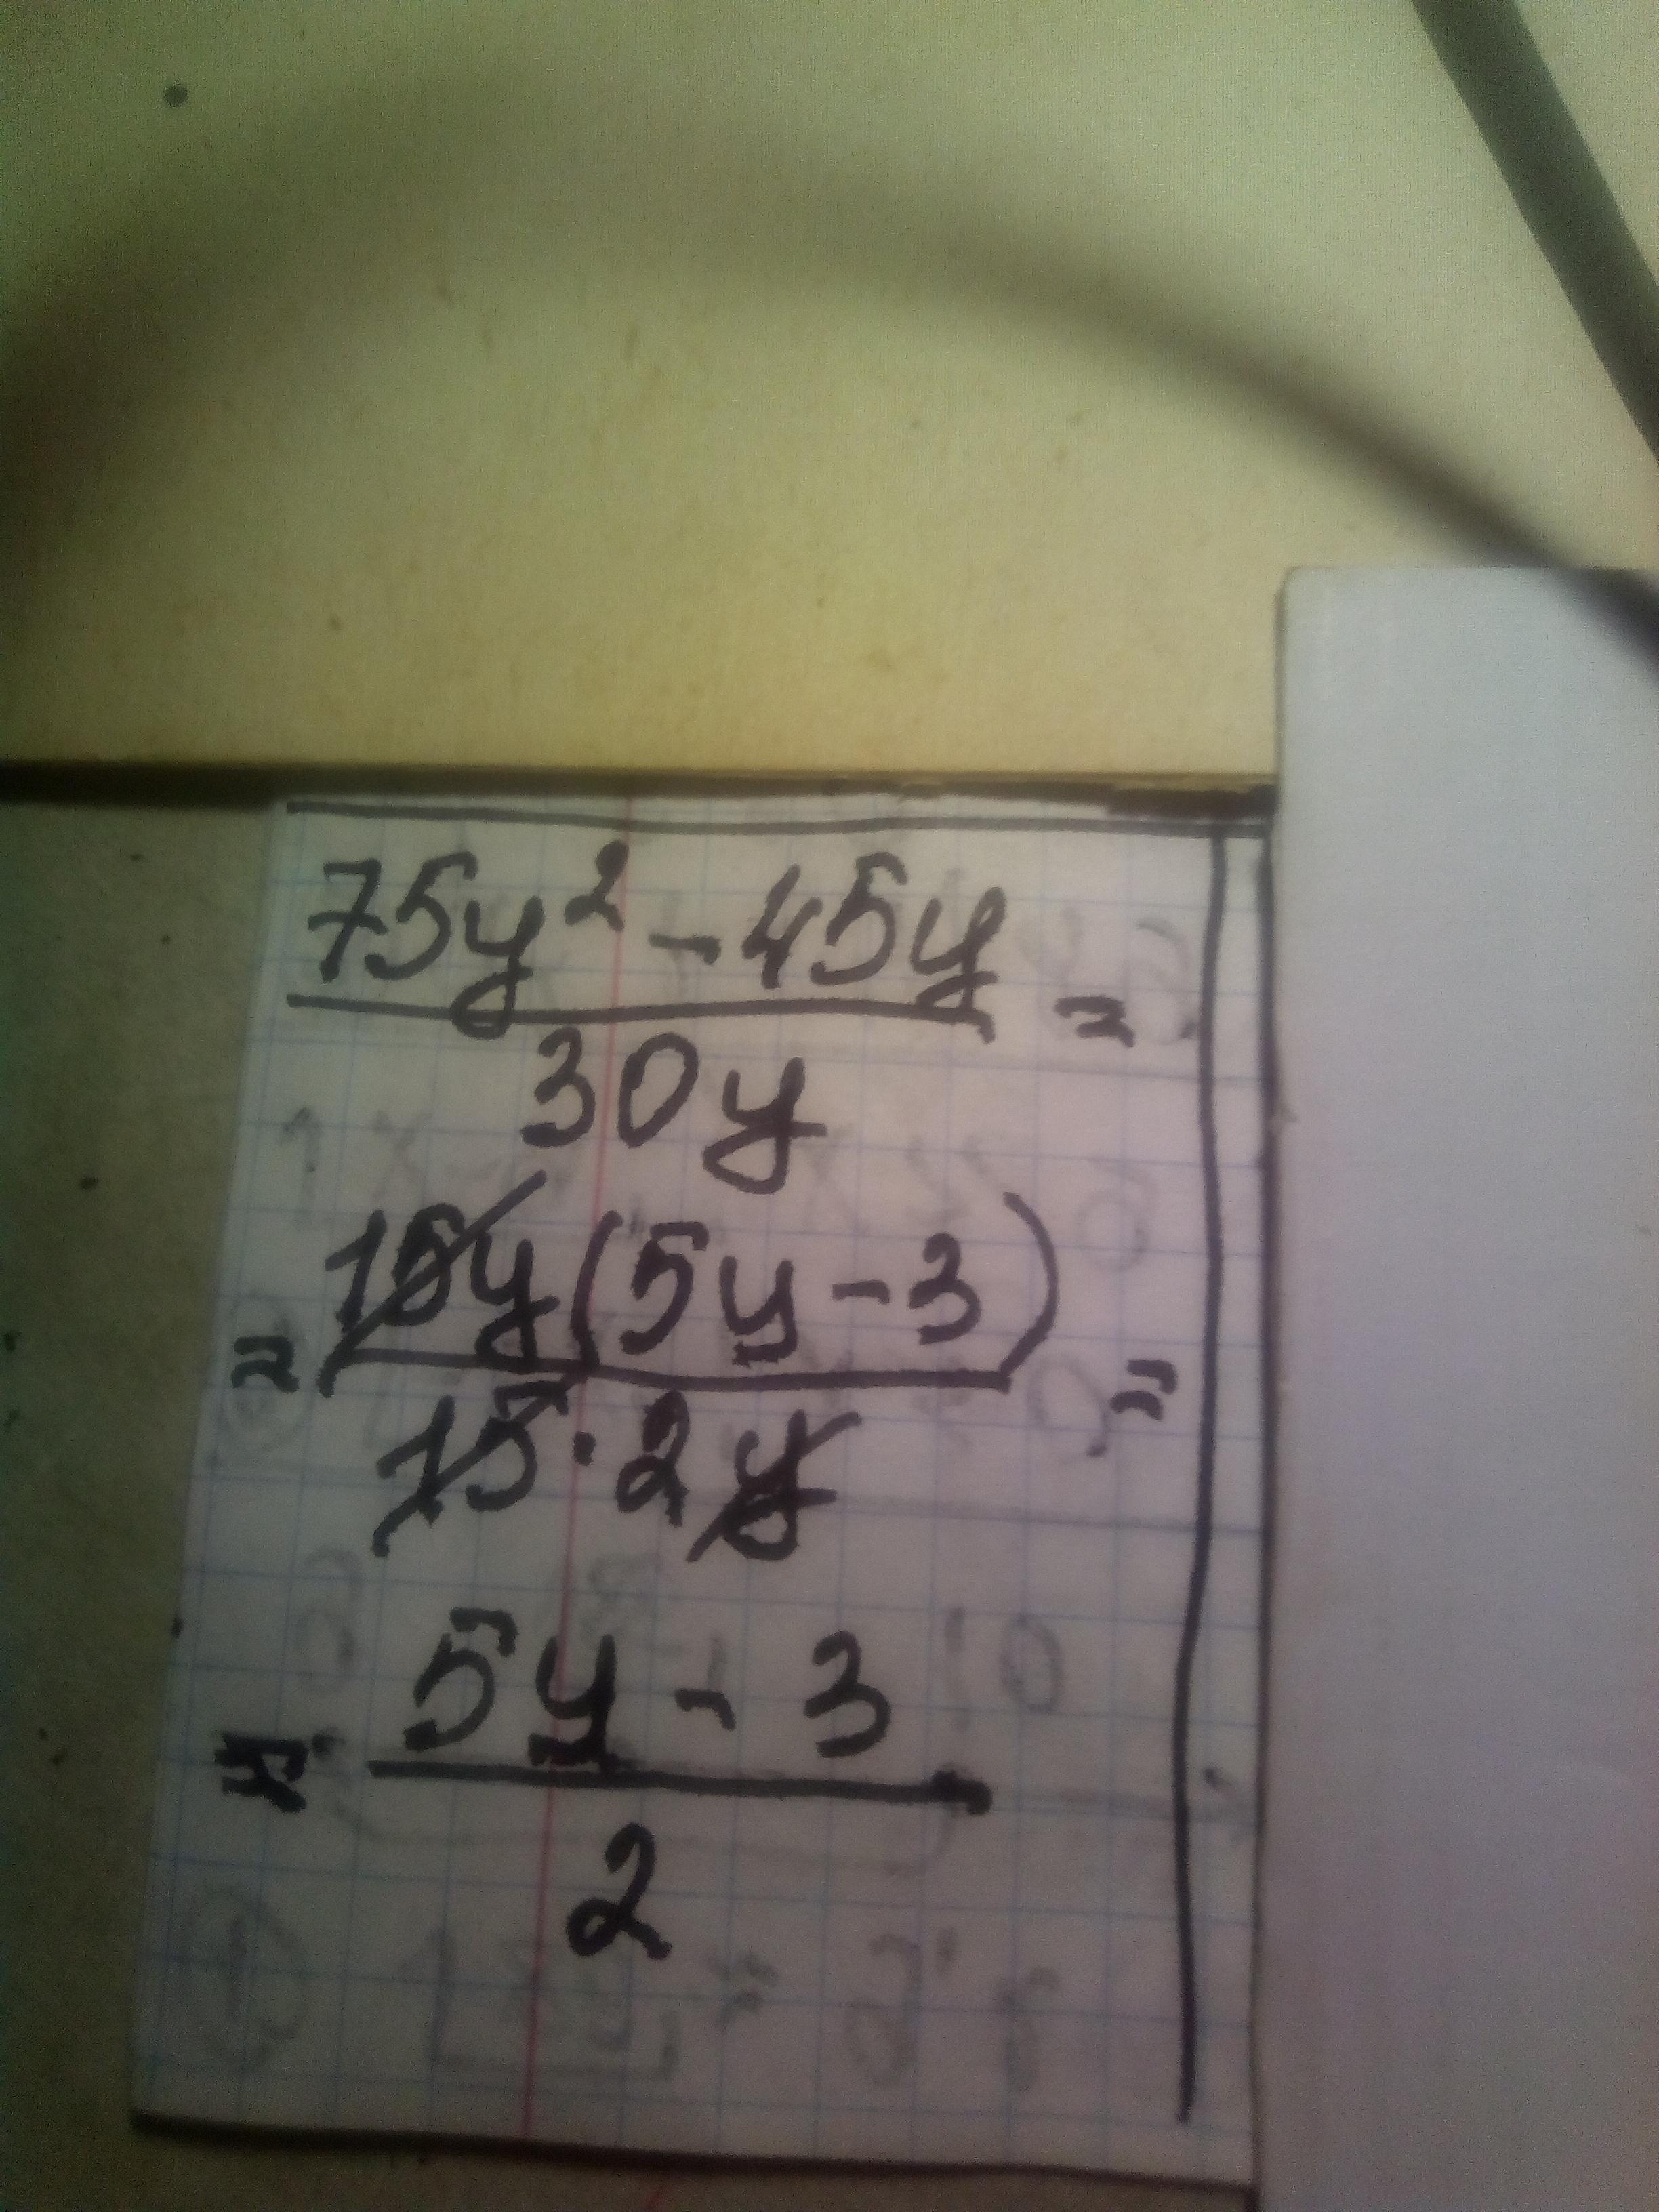 75y² - 45y / 30y =
= 15y(5y - 3) / 15 · 2y =
= 5y - 3 / 2